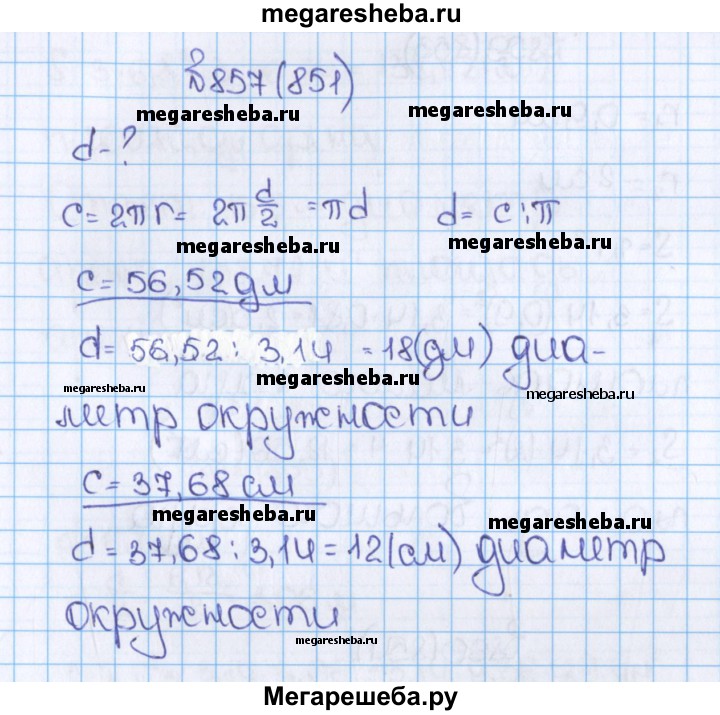 megaresheba.ru
№857(851)
megaresheba.ru megaresheba.ru
d-?
c=2πr= 2π d/2 =πd d= c:π
megaresheba.ru megaresheba.ru
c=56,52дм
d= 56,52: 3,14 =18(дм) диа-
megaresheba.ru megaresheba.ru megaresheba.ru
метр окружности
c=37,68см
megaresheba.ru megaresheba.ru
d=37,68:3,14=12(см) диаметр
окружности
megaresheba.ru
Мегарешеба.ру